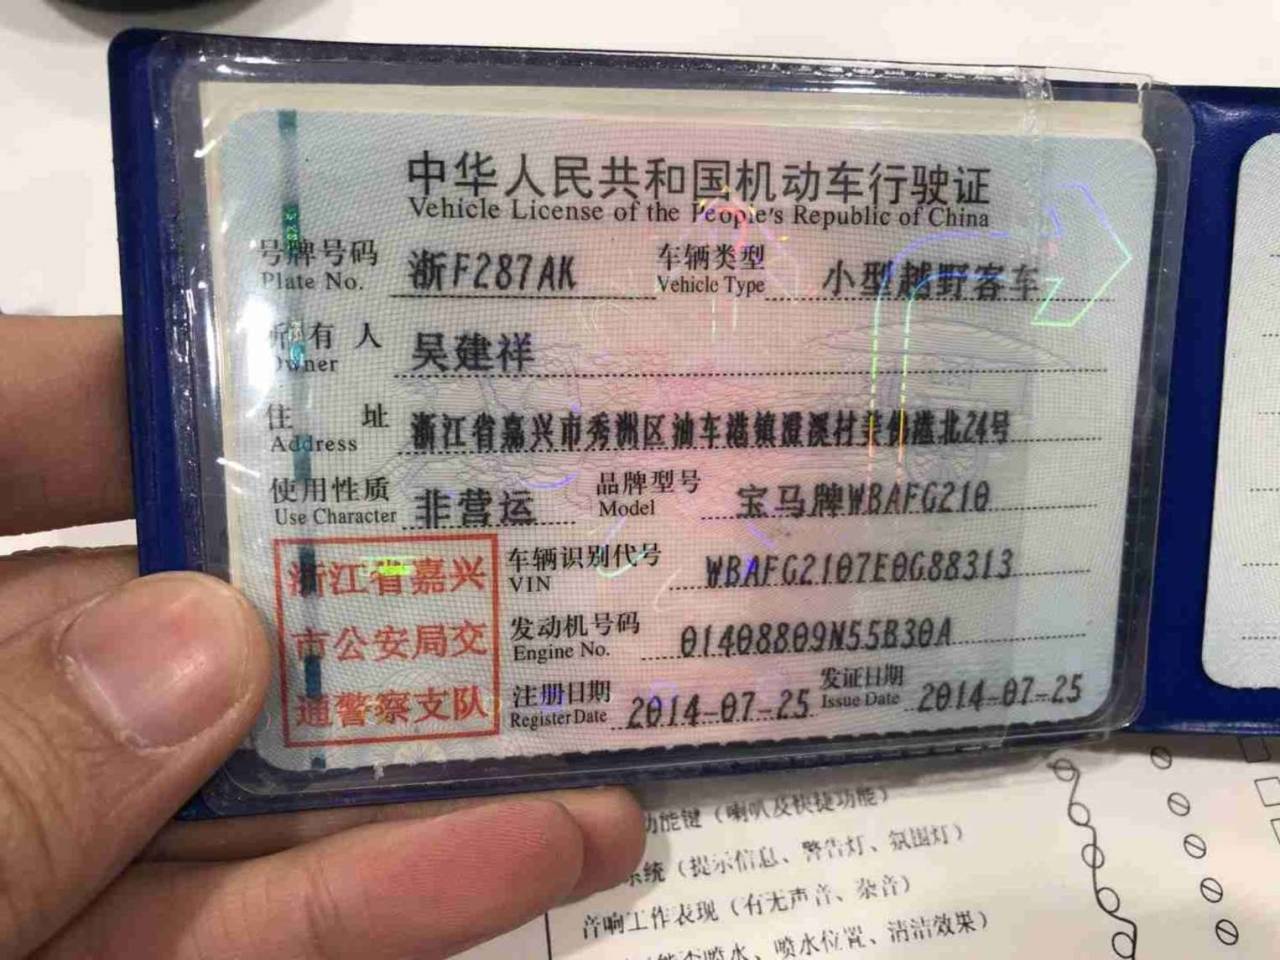 中华人民共和国机动车行驶证
Vehicle License of the People's Republic of China
号牌号码 浙F287AK 车辆类型 小型越野客车
Plate No. Vehicle Type
所有人 吴建祥
Owner
住址 浙江省嘉兴市秀洲区油车港镇澄溪村美伽港北24号
Address
使用性质 非营运 品牌型号 宝马牌WBAFG210
Use Character Model
车辆识别代号 WBAFG2107E0G88313
VIN
发动机号码 01408809N55B30A
Engine No.
注册日期 2014-07-25 发证日期 2014-07-25
Register Date Issue Date
浙江省嘉兴
市公安局交
通警察支队
功能键（喇叭及快捷功能）
系统（提示信息、警告灯、氛围灯）
音响工作表现（有无声音、杂音）
喷水、喷水位置、清洁效果）